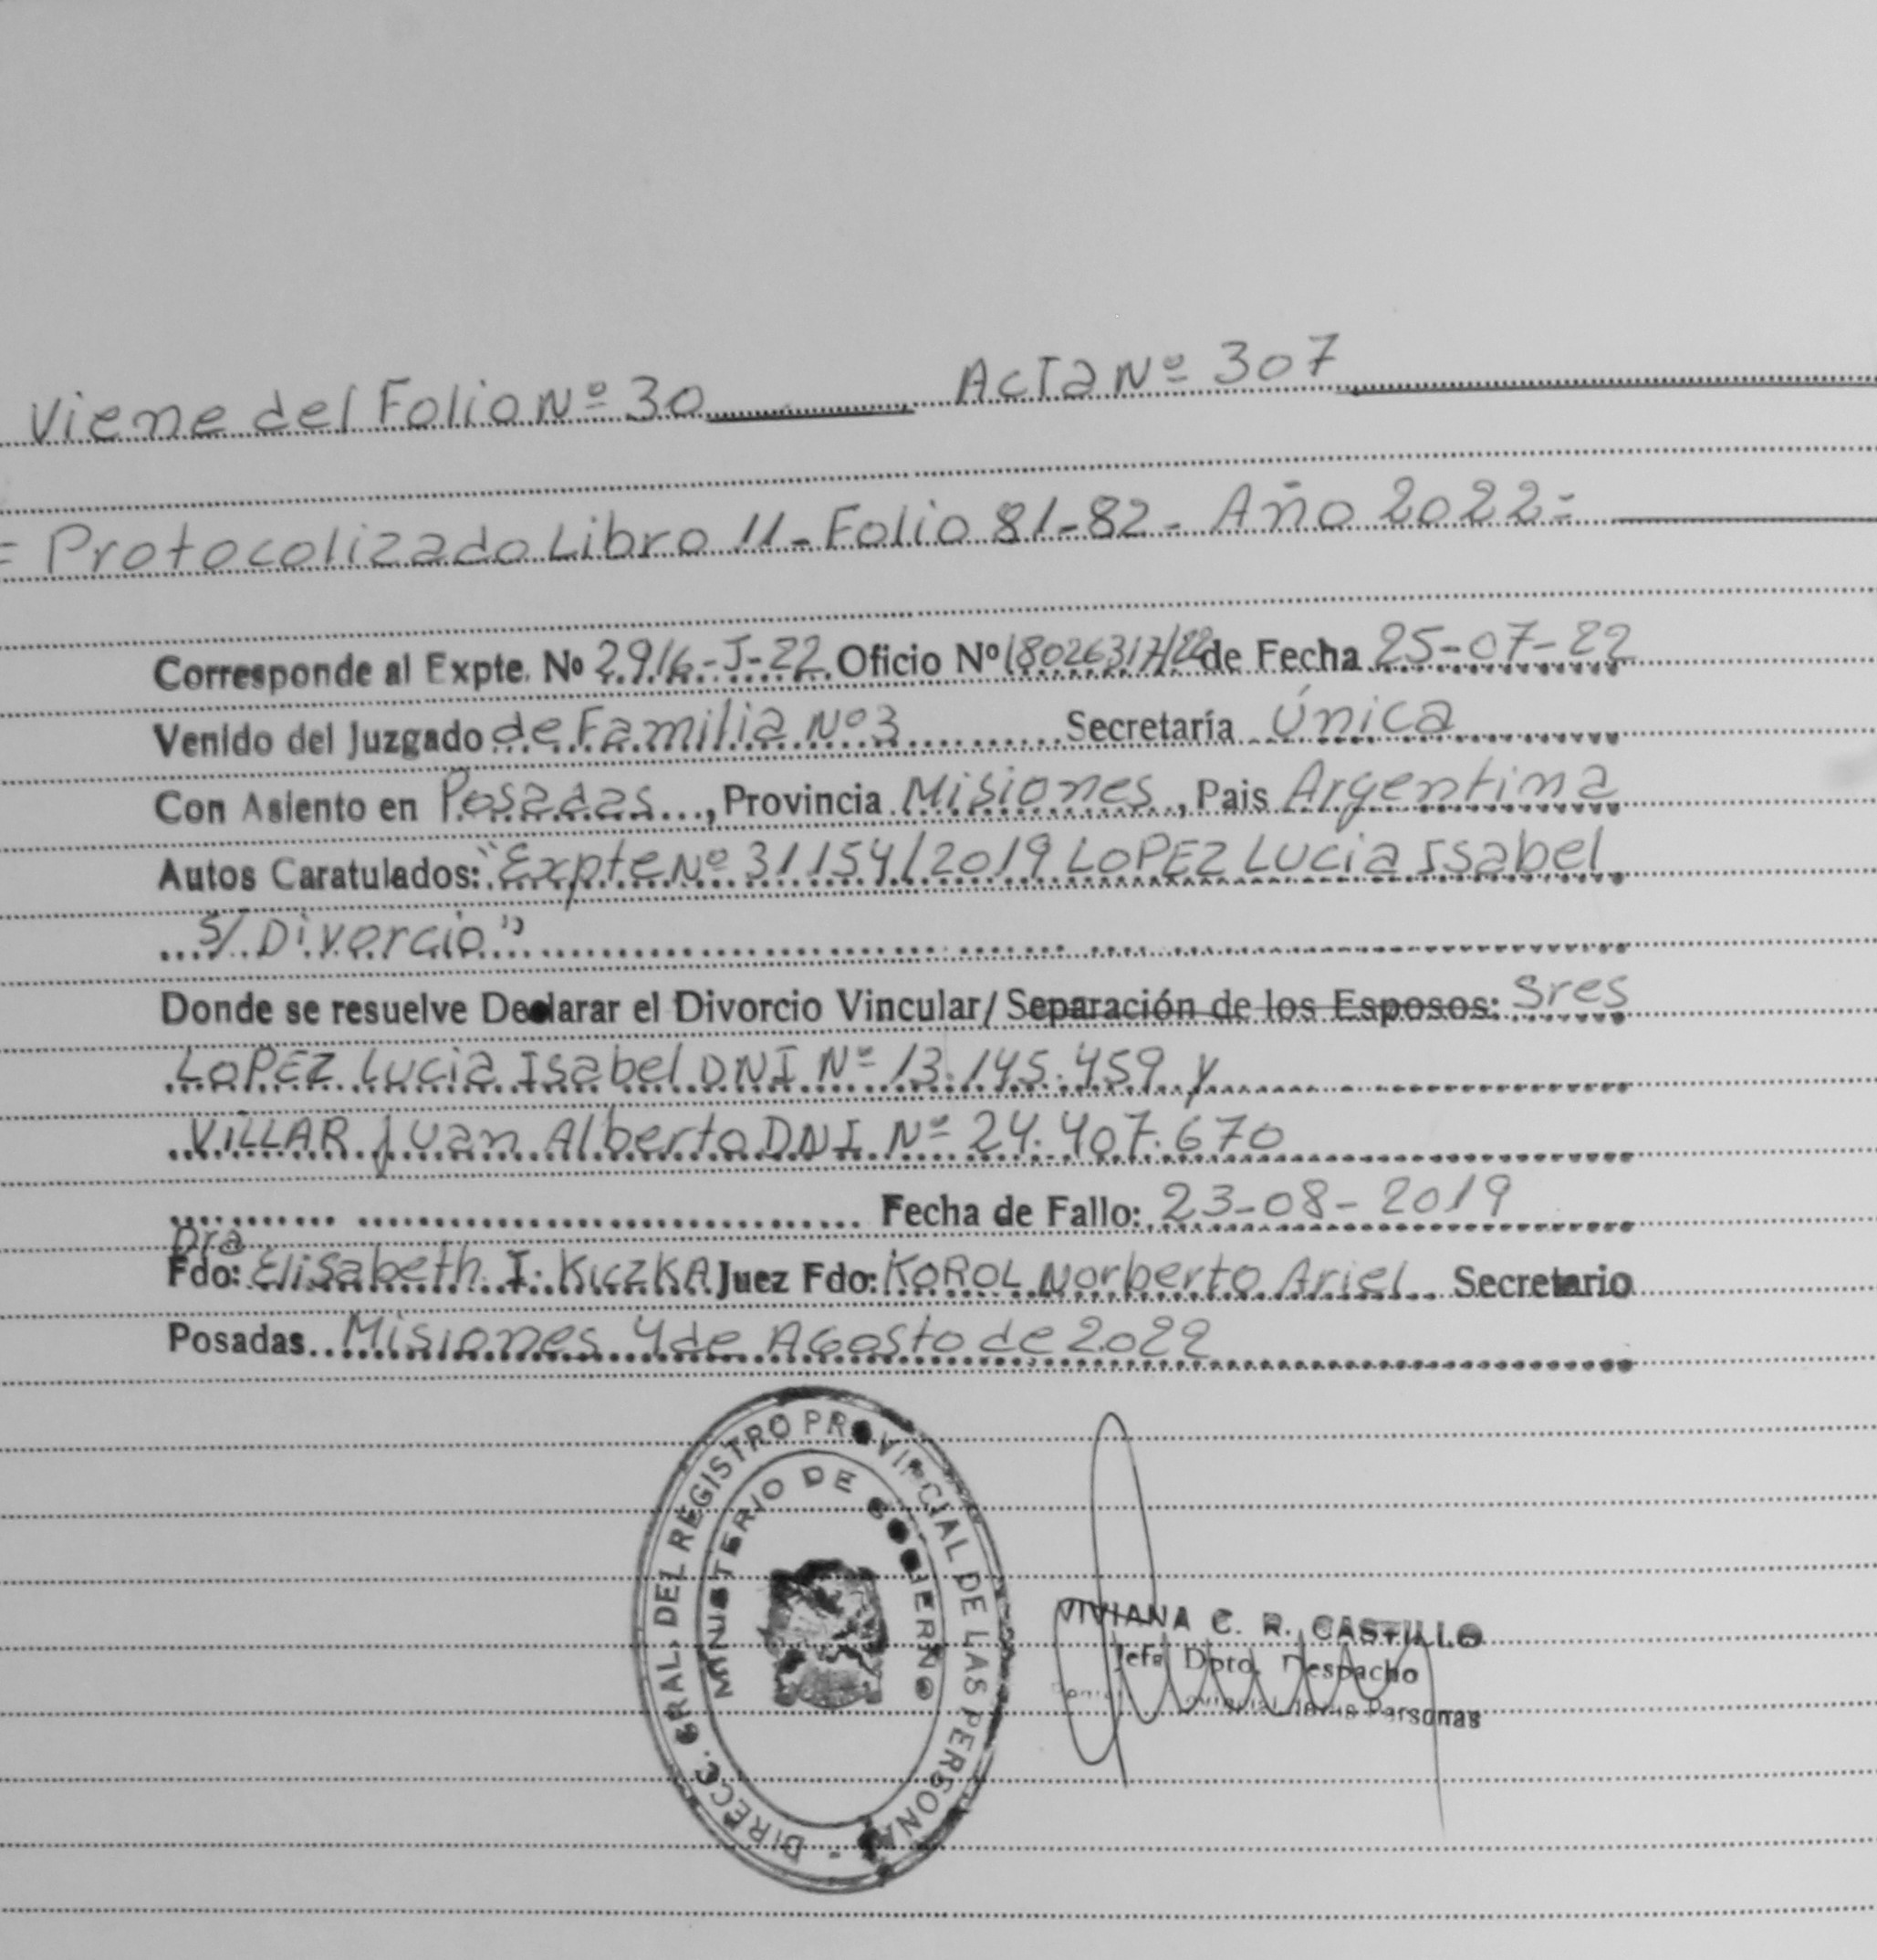 Viene del Folio Nº 30 Acta Nº 307
= Protocolizado Libro 11 - Folio 81-82 - Año 2022 =
Corresponde al Expte. Nº 2916-J-22 Oficio Nº 18026317/22 de Fecha 25-07-22
Venido del Juzgado de Familia Nº 3 Secretaría Única
Con Asiento en Posadas, Provincia Misiones, Pais Argentina
Autos Caratulados: "Expte Nº 31154/2019 LOPEZ Lucia Isabel
S/ Divorcio"
Donde se resuelve Declarar el Divorcio Vincular/ Separación de los Esposos: Sres
LOPEZ Lucia Isabel DNI Nº 13.145.459 y
VILLAR Juan Alberto DNI Nº 24.407.670
Fecha de Fallo: 23-08-2019
Dra
Fdo: Elisabeth I. KICZKA Juez Fdo: KOROL Norberto Ariel Secretario
Posadas Misiones 4 de Agosto de 2022
DIRECC. GRAL. DEL REGISTRO PROVINCIAL DE LAS PERSONAS
MINISTERIO DE GOBIERNO
VIVIANA C. R. CASTILLO
Jefa Dpto. Despacho
Personas